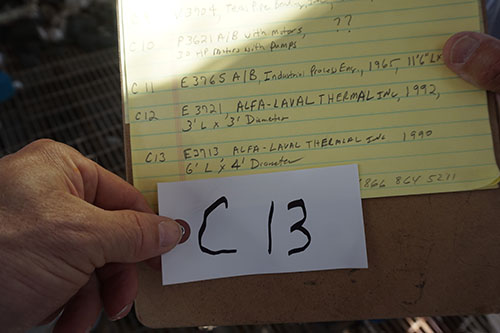 C10 P3621 A/B with motors, ??
HP Motors with Pumps
C11 E3765 A/B, Industrial Process Eng., 1965, 11'6" L x
C12 E3721, ALFA-LAVAL THERMAL INC, 1992,
3' L x 3' Diameter
C13 E2713 ALFA-LAVAL THERMAL INC 1990
6' L x 4' Diameter
866 864 5211
C 13